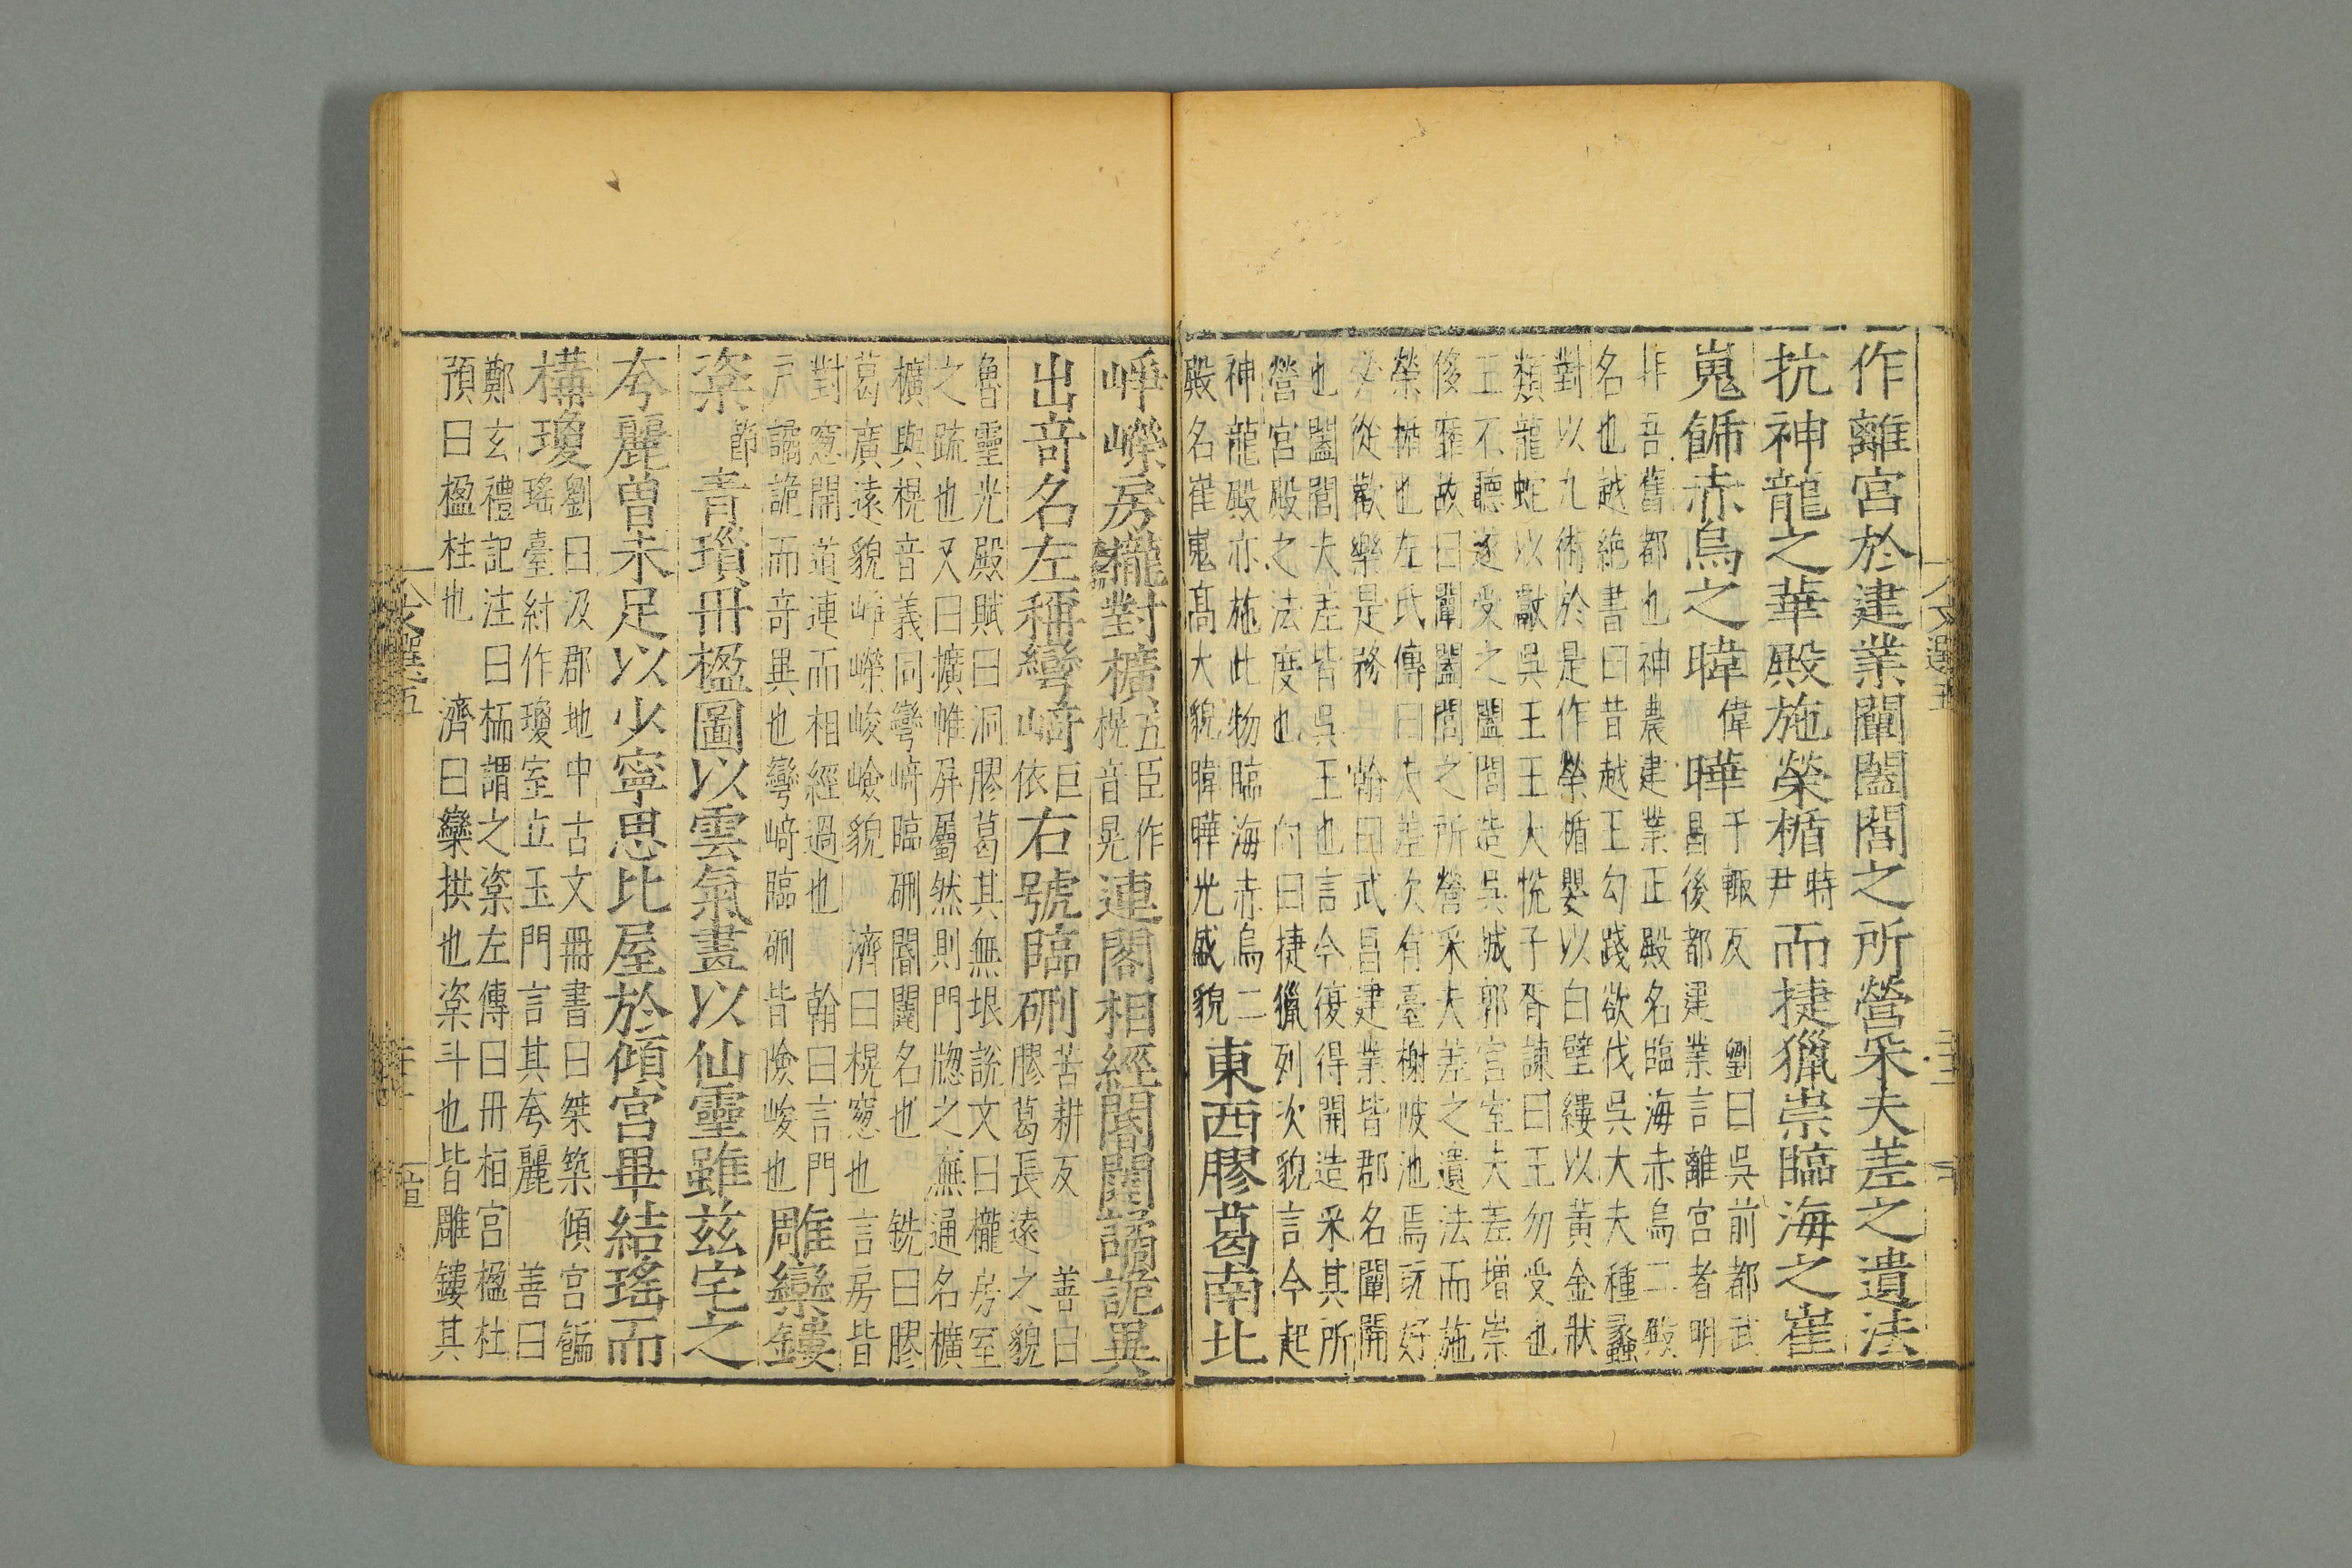 作離宮於建業闡闔閭之所營采夫差之遺法
抗神龍之華殿施榮楯時尹而捷獵崇臨海之崔
嵬飾赤烏之暐偉曄于輙反劉曰吳前都武
昌後都建業言離宮者明
非吾舊都也神農建業正殿名臨海赤烏二殿
名也越絶書曰昔越王勾踐欲伐吳大夫種蠡
對以九術於是作榮楯嬰以白璧縷以黃金狀
類龍蛇以獻吳王王大恱子胥諫曰王勿受也
王不聽遂受之闔閭造吳城郭宮室夫差增崇
侈靡故曰闡闔閭之所營采夫差之遺法而施
榮楯也左氏傳曰夫差次有臺榭陂池焉玩好
必從歡樂是務翰曰武昌建業皆郡名闡開
也闔閭夫差皆吳王也言今復得開造采其所
營宮殿之法度也向曰捷獵列次貌言今起
神龍殿亦施此物臨海赤烏二
殿名崔嵬高大貌暐曄光盛貌東西膠葛南北
崢嶸房櫳對櫎五臣作
榥音晃連閣相經閽闥譎詭異
出奇名左稱彎崎巨
依右號臨硎苦耕反善曰
膠葛長遠之貌
魯靈光殿賦曰洞膠葛其無垠說文曰櫳房室
之疏也又曰櫎帷屏屬然則門牎之廡通名櫎
櫎與榥音義同彎崎臨硎閽闥名也銑曰膠
葛廣遠貌崢嶸峻嶮貌濟曰榥窓也言房皆
對窓開道連而相經過也翰曰言門
戶譎詭而奇異也彎崎臨硎皆險峻也雕欒鏤
楶節青瑣丹楹圖以雲氣畫以仙靈雖茲宅之
夸麗曾未足以少寧思比屋於傾宮畢結瑤而
構瓊劉曰汲郡地中古文冊書曰桀築傾宮飾
瑤臺紂作瓊室立玉門言其夸麗善曰
鄭玄禮記注曰栭謂之楶左傳曰丹桓宮楹杜
預曰楹柱也濟曰欒拱也楶斗也皆雕鏤其
文選五
文選五